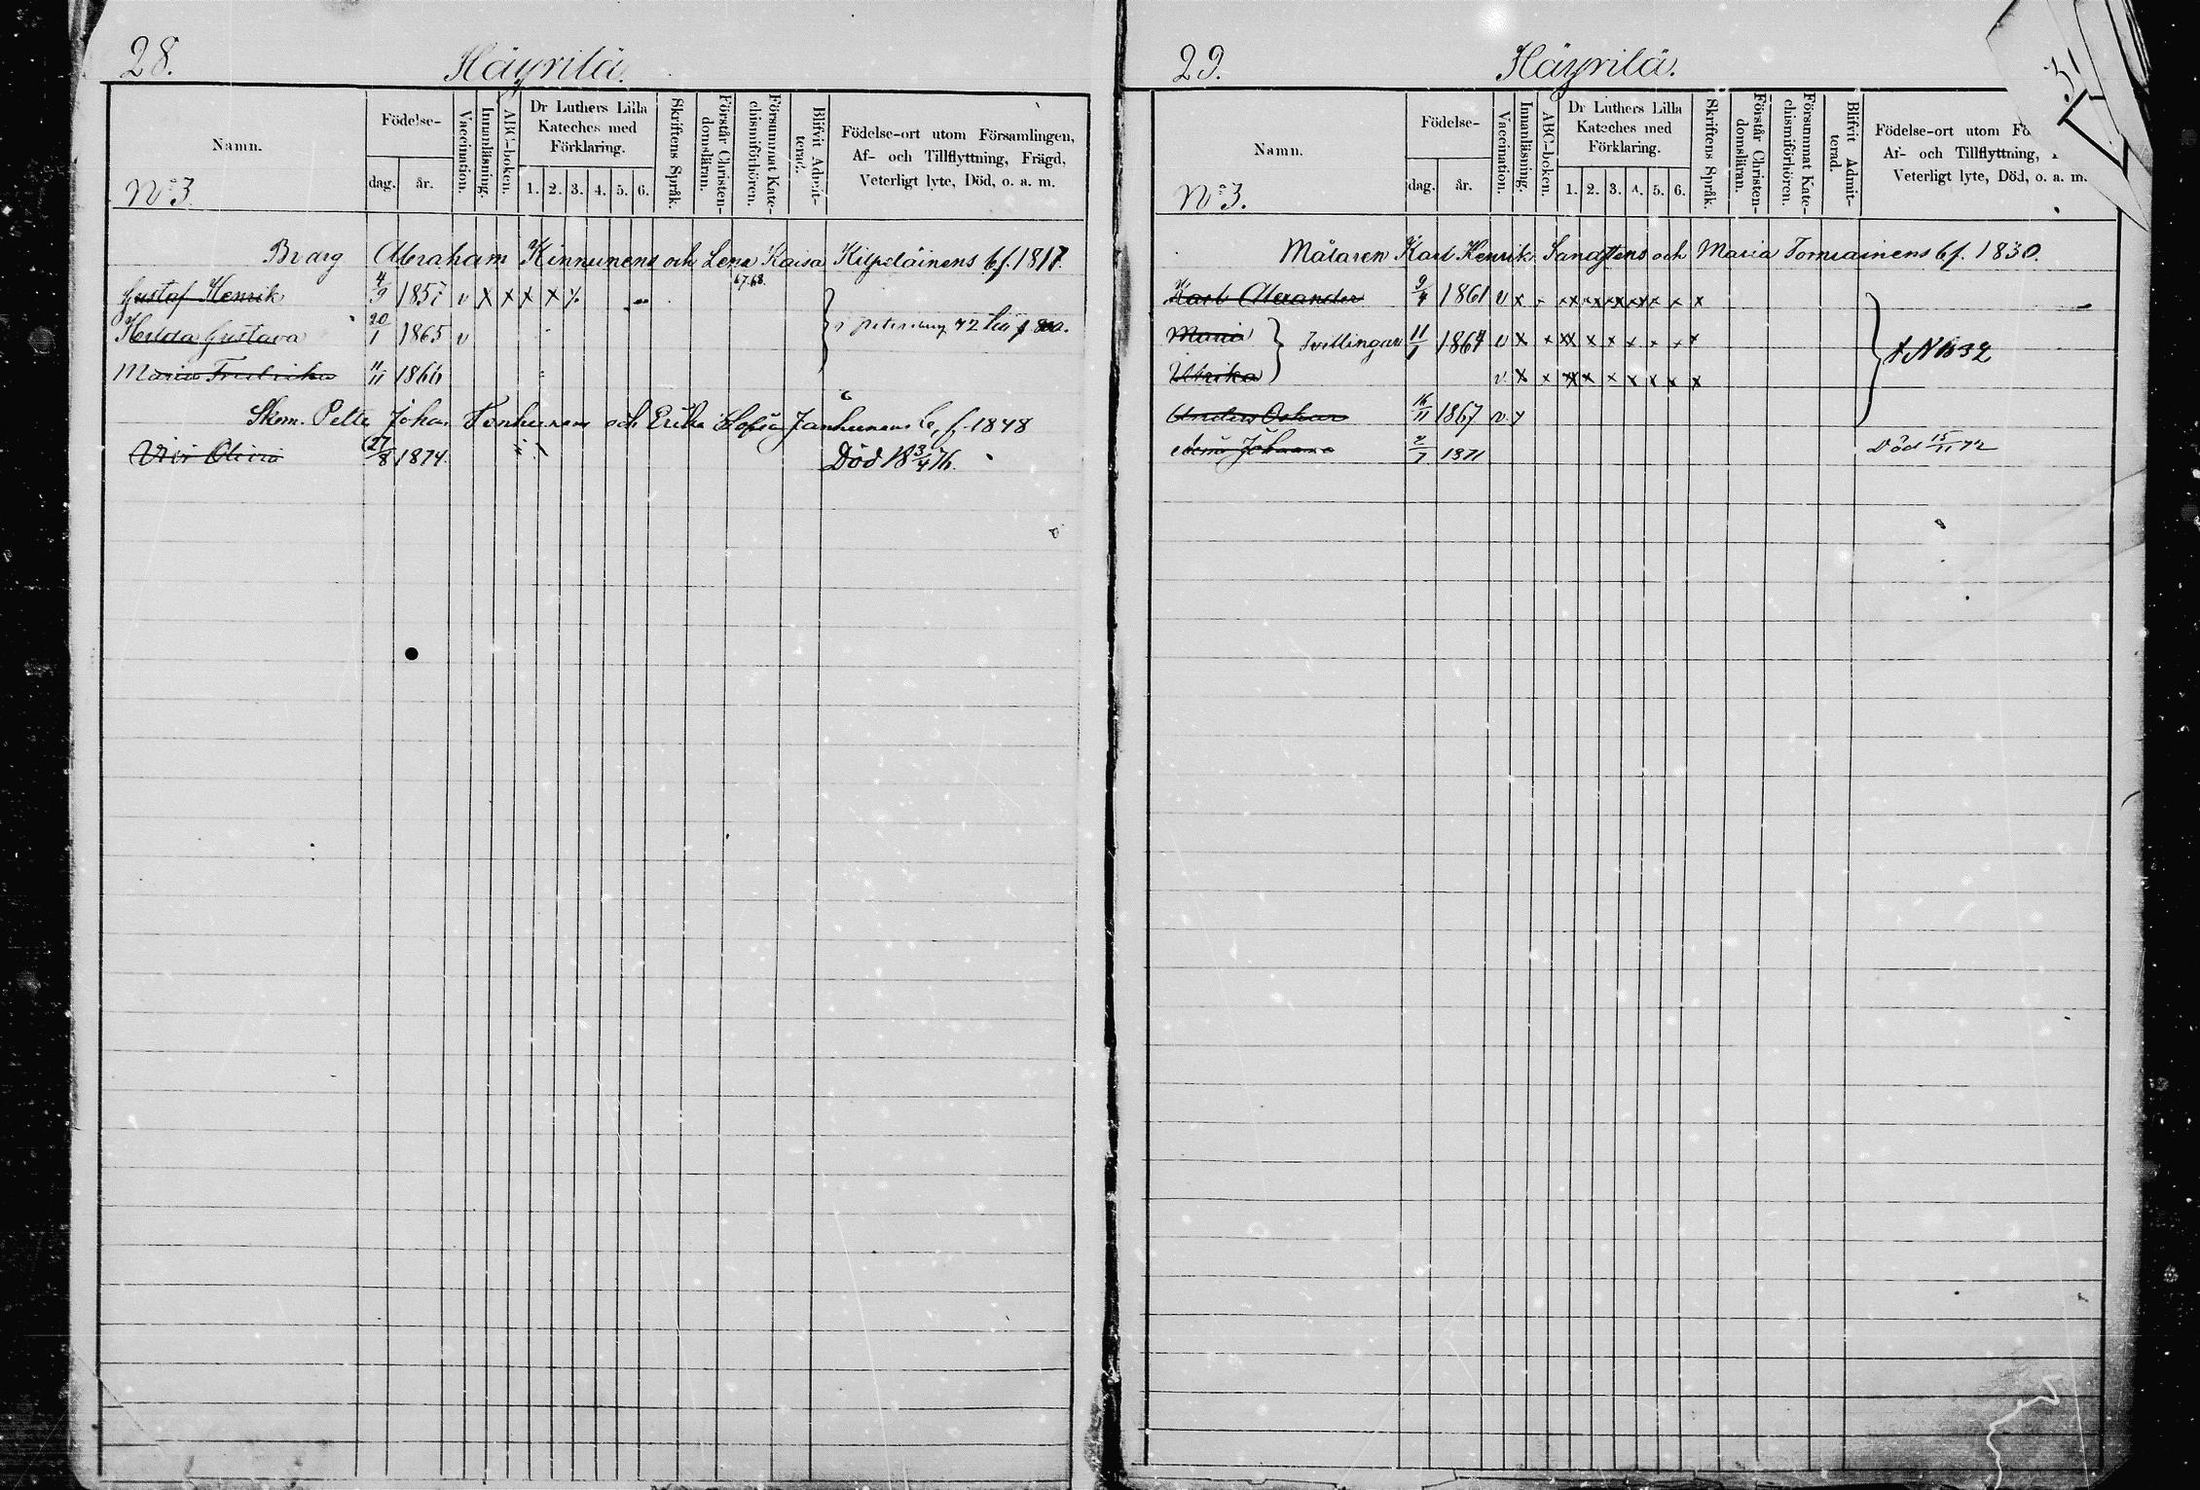 28.
Häyrilä.
Namn.
Födelse-
dag.
år.
Vaccination.
Innanläsning.
ABC-boken.
Dr Luthers Lilla
Kateches med
Förklaring.
1. 2. 3. 4. 5. 6.
Skriftens Språk.
Förstår Christen-
domsläran.
Försummat Kate-
chismiförhören.
Blifvit Admit-
terad.
Födelse-ort utom Församlingen,
Af- och Tillflyttning, Frägd,
Veterligt lyte, Död, o. a. m.
N:o 3.
Abraham Kinnunens och Lena Kaisa Hilpeläinens b.f. 1817.
67.68.
Gustaf Henrik 4/9 1857 v x x x x
Hilda Gustava 20/1 1865 v
Maria Fredrika 11/11 1866
Skom. Pelle Johan och Erika Sofia Janhunens b. f. 1848
Olivia 27/8 1874. Död 18 3/4 76.
29.
Häyrilä.
Namn.
Födelse-
dag.
år.
Vaccination.
Innanläsning.
ABC-boken.
Dr Luthers Lilla
Kateches med
Förklaring.
1. 2. 3. 4. 5. 6.
Skriftens Språk.
Förstår Christen-
domsläran.
Försummat Kate-
chismiförhören.
Blifvit Admit-
terad.
Födelse-ort utom
Af- och Tillflyttning,
Veterligt lyte, Död, o. a. m.
N:o 3.
Målaren Karl Henrik och Maria b.f. 1830.
Karl Alexander 9/4 1861 v x x xx xx xx xx x x x
Maria Tvillingar 11/1 1864 v x x xx x x x x x x
Ulrika v x x xx x x x x x x
Anders Oskar 16/11 1867 v
Johanna 1871 Död 15/11 72